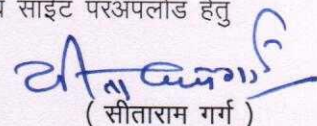 साईट परअपलोड हेतु
( सीताराम गर्ग )